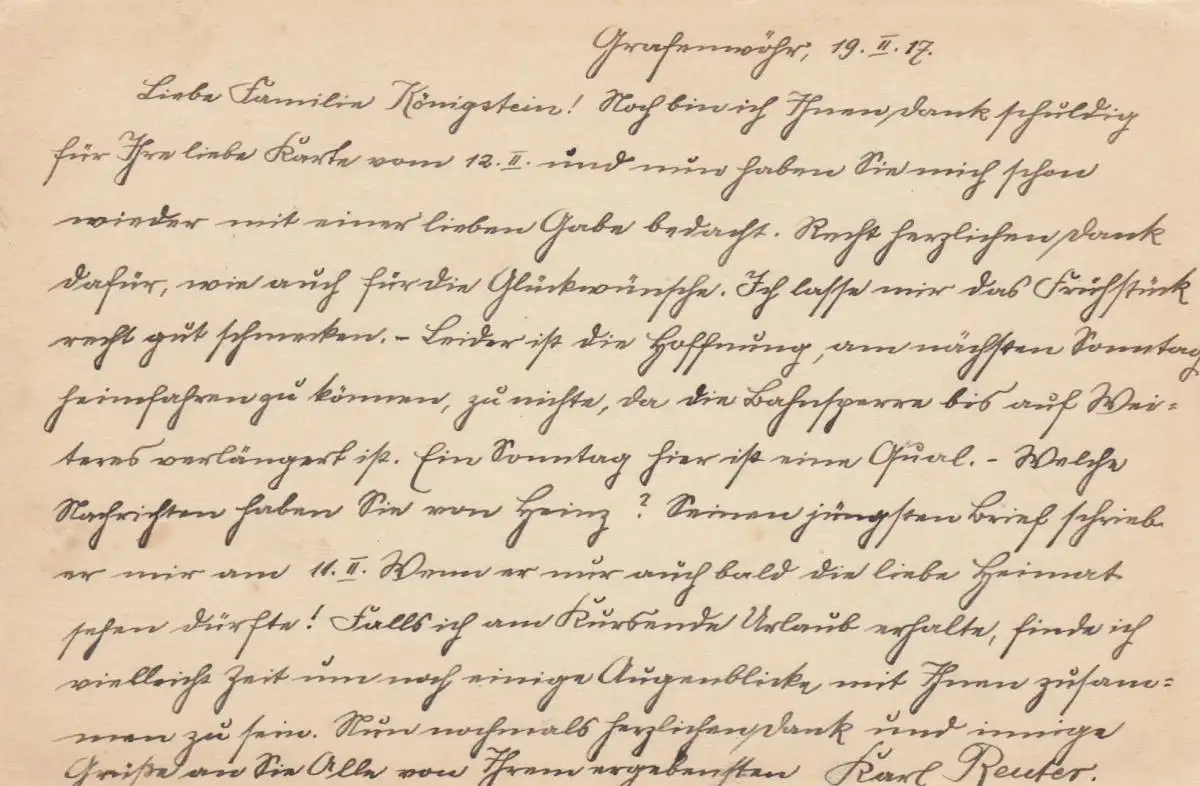 Grafenwöhr, 19. II. 17.
Liebe Familie Königstein! Noch bin ich Ihnen Dank schuldig
für Ihre liebe Karte vom 12. II. und nun haben Sie mich schon
wieder mit einer lieben Gabe bedacht. Recht herzlichen Dank
dafür, wie auch für die Glückwünsche. Ich lasse mir das Frühstück
recht gut schmecken. - Leider ist die Hoffnung, am nächsten Sonntag
heimfahren zu können, zu nichte, da die Bahnsperre bis auf Wei=
teres verlängert ist. Ein Sonntag hier ist eine Qual. - Welche
Nachrichten haben Sie von Heinz? Seinen jüngsten Brief schrieb
er mir am 11. II. Wenn er nur auch bald die liebe Heimat
sehen dürfte! Falls ich am Kursende Urlaub erhalte, finde ich
vielleicht Zeit um noch einige Augenblicke mit Ihnen zusam=
men zu sein. Nun nochmals herzlichen Dank und innige
Grüße an Sie Alle von Ihrem ergebensten Karl Reuter.